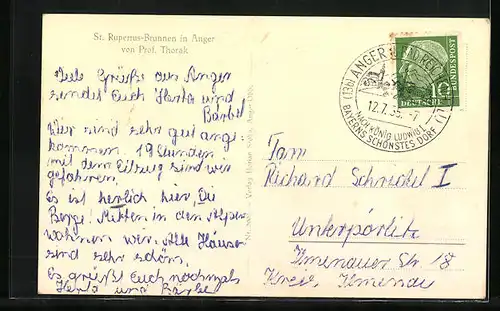 St. Rupertus-Brunnen in Anger
von Prof. Thorak
Viele Grüße aus Anger
sendet Euch Herta und
Bärbel
Wir sind sehr gut ange-
kommen. 19 Stunden
mit dem Eilzug sind wir
gefahren.
Es ist herrlich hier, Die
Berge! Mitten in den Alpen
wohnen wir. Alle Häuser
sind sehr schön.
Es grüßt Euch nochmals
Herta und Bärbel
Verlag
ANGER
12.7.55.-7
NACH KÖNIG LUDWIG I.
BAYERNS SCHÖNSTES DORF
DEUTSCHE
BUNDESPOST
10
Fam
Richard Schneckel I
Unterpörlitz
Ilmenauer Str. 18
Kreis Ilmenau